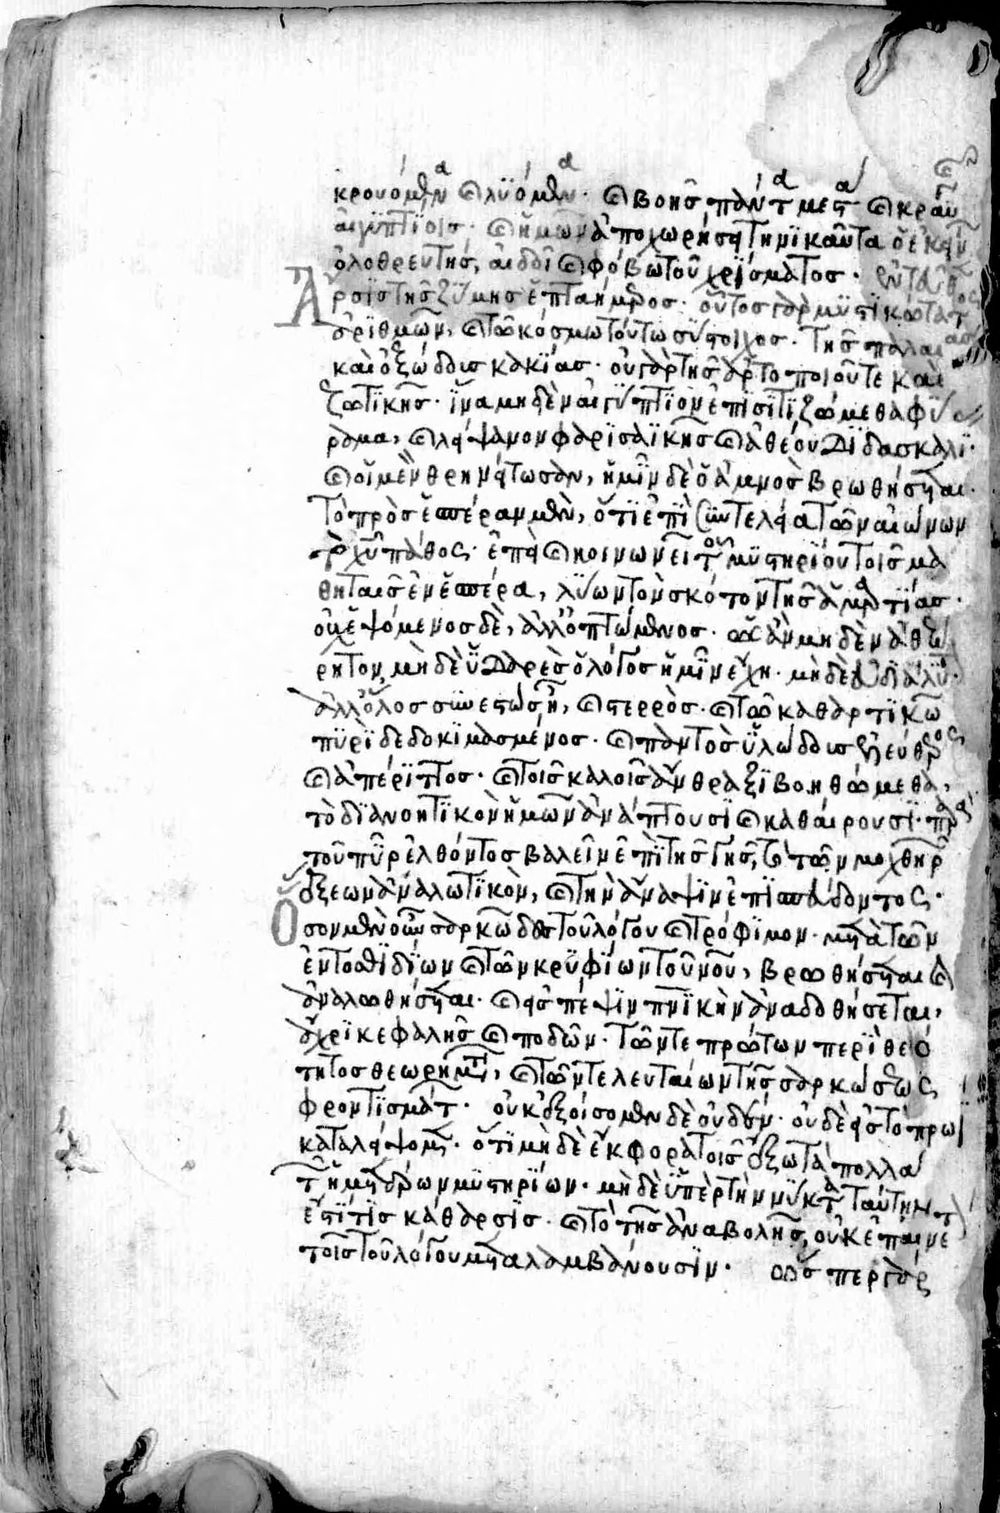 κρουόμενα καὶ λυόμενα· καὶ βοῆς πάντα μεστὰ καὶ κραυγῆς
αἰγυπτίοις· καὶ ἡμῶν ἀποχωρήσει τηνικαῦτα ὁ ἐκείνων
ὀλοθρευτής, αἰδοῖ καὶ φόβω τοῦ χρίσματος· ἐνταῦθα
ἄρσις τῆς ζύμης ἑπταήμερος· οὗτος γὰρ μυστικώτατος
ἀριθμῶν, καὶ τῶ κόσμω τούτω σύστοιχος· τῆς παλαιᾶς
καὶ ὀξώδους κακίας· οὐ γὰρ τῆς ἀρτοποιοῦ τε καὶ
ζωτικῆς· ἵνα μηδὲν αἰγύπτιον ἐπισιτιζώμεθα φύ
ραμα, καὶ λείψανον φαρισαϊκῆς καὶ ἀθέου διδασκαλί·
καὶ οἱ μὲν θρηνείτωσαν, ἡμῖν δὲ ὁ ἀμνὸς βρωθήσεται·
τὸ πρὸς ἑσπέραν μὲν, ὅτι ἐπὶ συντελεία τῶν αἰώνων
τὸ χῦ πάθος· ἐπεὶ καὶ κοινωνεῖ τοῦ μυστηρίου τοῖς μα
θηταῖς ἐν ἑσπέρα, λύων τὸν σκότον τῆς ἁμαρτίας·
οὐχ ἑψόμενος δὲ, ἀλλ' ὀπτώμενος· ὡς ἂν μηδὲν ἀθεώ
ρητον, μηδὲ ὑδαρὲς ὁ λόγος ἡμῖν ἔχη· μηδὲ εὐδιάλυτ·
ἀλλ' ὅλος συνεστὼς ἦ, καὶ στερρὸς· καὶ τῶ καθαρτικῶ
πυρὶ δεδοκιμασμένος· καὶ παντὸς ὑλώδους ἐλεύθερος
καὶ ἀπέριττος· καὶ τοῖς καλοῖς ἄνθραξι βοηθώμεθα,
τὸ διανοητικὸν ἡμῶν ἀνάπτουσι καὶ καθαίρουσι· παρὰ
τοῦ πῦρ ἐλθόντος βαλεῖν ἐπὶ τῆς γῆς, τὸ τῶν μοχθηρῶν
ἕξεων ἀναλωτικὸν, καὶ τὴν ἄναψιν ἐπισπεύδοντος·
Ὅσον μὲν οὖν σαρκῶδες τοῦ λόγου καὶ τρόφιμον· μετὰ τῶν
ἐντοσθιδίων καὶ τῶν κρυφίων τοῦ νοῦ, βρωθήσεται καὶ
ἀναλωθήσεται· καὶ εἰς πέψιν πνικὴν ἀναδοθήσεται,
ἄχρι κεφαλῆς καὶ ποδῶν· τῶν τε πρώτων περὶ θεό
τητος θεωρημάτων, καὶ τῶν τελευταίων τῆς σαρκώσεως
φροντισμάτων· οὐκ ἐξοίσομεν δὲ οὐδέν· οὐδὲ εἰς τὸ πρωὶ
καταλείψομεν· ὅτι μηδὲ ἔκφορα τοῖς ἔξω τὰ πολλὰ
τῶν ἡμετέρων μυστηρίων· μηδὲ ὑπὲρ τὴν νύκτα ταύτην
ἐστί τις κάθαρσις· καὶ τὸ τῆς ἀναβολῆς, οὐκ ἐπαινε
τοῖς τοῦ λόγου μεταλαμβάνουσιν· ὥσπερ γὰρ